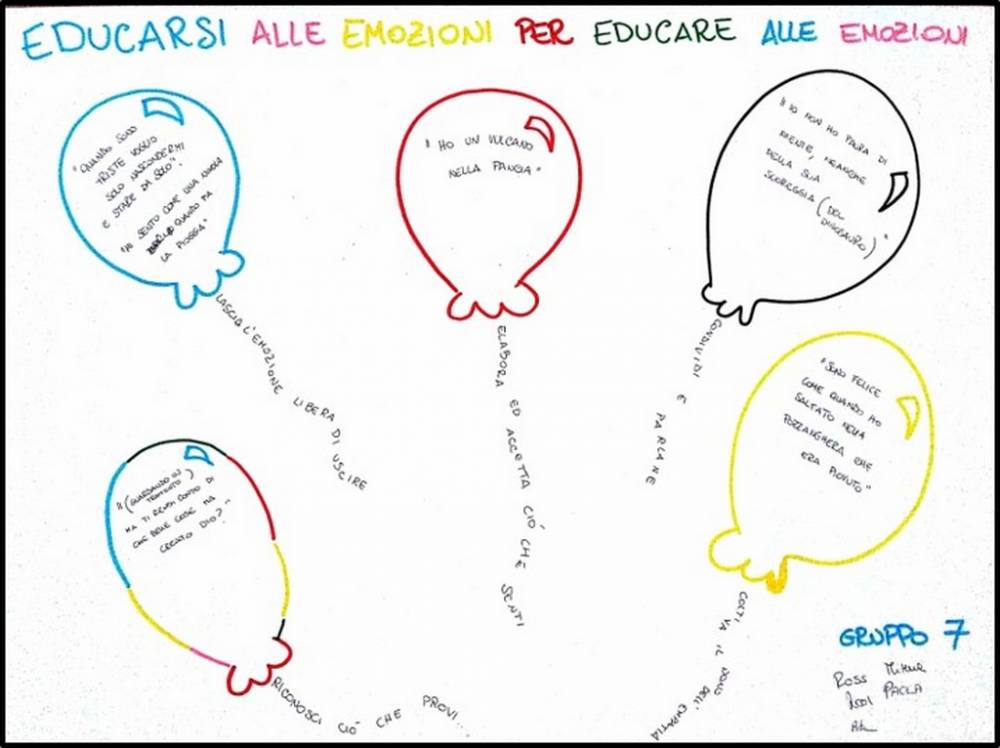 EDUCARSI ALLE EMOZIONI PER EDUCARE ALLE EMOZIONI
"QUANDO SONO
TRISTE VOGLIO
SOLO NASCONDERMI
E STARE DA SOLO".
"MI SENTO COME UNA NUVOLA
QUANDO FA
LA PIOGGIA"
LASCIA L'EMOZIONE LIBERA DI USCIRE
"HO UN VULCANO
NELLA PANCIA"
ELABORA ED ACCETTA CIÒ CHE SENTI
"IO NON HO PAURA DI
NIENTE, NEANCHE
DELLA SUA
SCOREGGIA (DEL
DINOSAURO)"
CONDIVIDI E PARLANE
"SONO FELICE
COME QUANDO HO
SALTATO NELLA
POZZANGHERA CHE
ERA PIOVUTO"
COLTIVA IL DONO DELL'EMPATIA
"(GUARDANDO UN
TRAMONTO)
MA TI RENDI CONTO DI
CHE BELLE COSE HA
CREATO DIO?"
RICONOSCI CIÒ CHE PROVI...
GRUPPO 7
ROSS
PAOLA